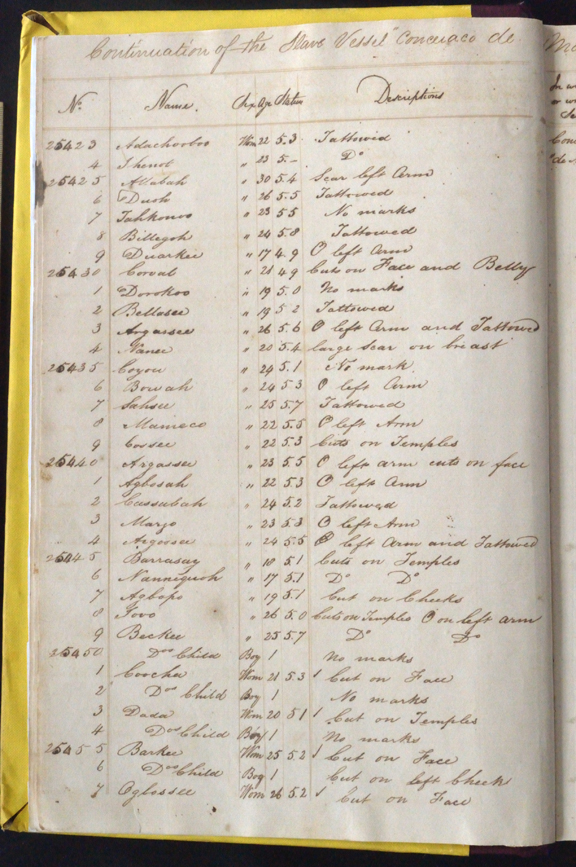 Continuation of the Slave Vessel "Conceicao de
No. Name. Sex Age Stature Descriptions
25423 Adachooboo Wom 22 5.3 Tattowed
4 Thenot " 23 5.– Do
25425 Allabah " 30 5.4 Scar left Arm
6 Dusoh " 26 5.5 Tattowed
7 Tahkonoo " 23 5.5 No marks
8 Billegoh " 24 5.8 Tattowed
9 Duarkee " 17 4.9 O left Arm
25430 Corout " 21 4.9 Cuts on Face and Belly
1 Dorokoo " 19 5.0 No marks
2 Bellosee " 19 5.2 Tattowed
3 Argassee " 26 5.6 O left Arm and Tattowed
4 Nanse " 20 5.4 large Scar on breast
25435 Coyou " 24 5.1 No mark.
6 Bowah " 24 5.3 O left Arm
7 Sahsee " 25 5.7 Tattowed
8 Mamoco " 22 5.5 O left Arm
9 Cossee " 22 5.3 Cuts on Temples
25440 Argassee " 23 5.5 O left arm cuts on face
1 Agbosah " 22 5.3 O left Arm
2 Cassubah " 24 5.2 Tattowed
3 Margo " 23 5.3 O left Arm
4 Argossee " 24 5.5 O left Arm and Tattowed
25445 Barrasay " 18 5.1 Cuts on Temples
6 Nannequoh " 17 5.1 Do Do
7 Agbopo " 19 5.1 Cut on Cheeks
8 Fovo " 26 5.0 Cuts on Temples O on left arm
9 Beckee " 25 5.7 Do Do
25450 Dos Child Boy 1 No marks
1 Coocha Wom 21 5.3 1 Cut on Face
2 Dos Child Boy 1 No marks
3 Dada Wom 20 5.1 1 Cut on Temples
4 Dos Child Boy 1 No marks
25455 Barkee Wom 25 5.2 1 Cut on Face
6 Dos Child Boy 1 Cut on left Cheek
7 Ogbossee Wom 26 5.2 1 Cut on Face